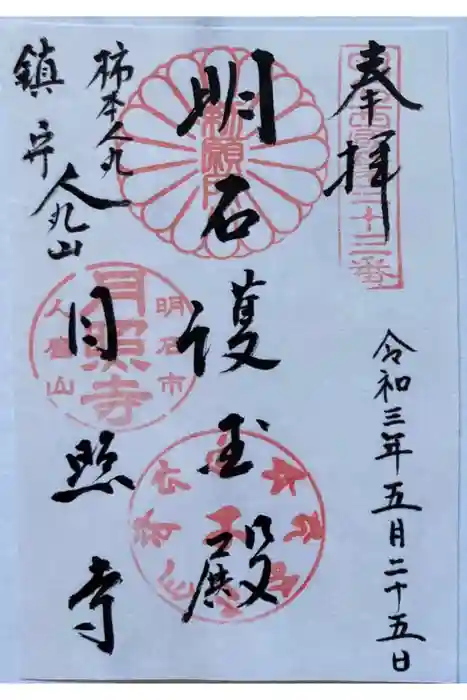 奉拝
令和三年五月二十五日
明石護玉殿
柿本人丸
鎮守
人丸山
月照寺
勅願所
月照寺
明石市
人麿山
二十二番